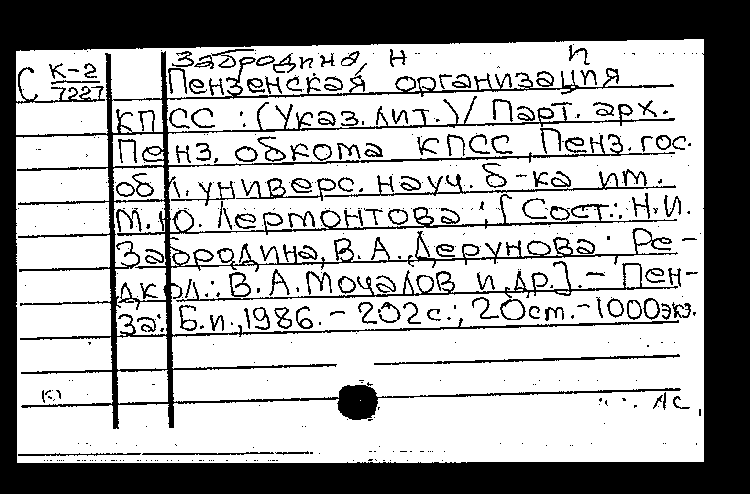 Забродина, Н п
С К-2 Пензенская организация
7227
КПСС : (Указ. лит.) / Парт. арх.
Пенз. обкома КПСС, Пенз. гос.
обл. универс. науч. б-ка им.
М.Ю. Лермонтова ; [Сост.: Н.И.
Забродина, В.А. Дерунова ; Ре-
дкол.: В.А. Мочалов и др.]. - Пен-
за: Б.и., 1986. - 202 с.; 20 см. - 1000 экз.
АС